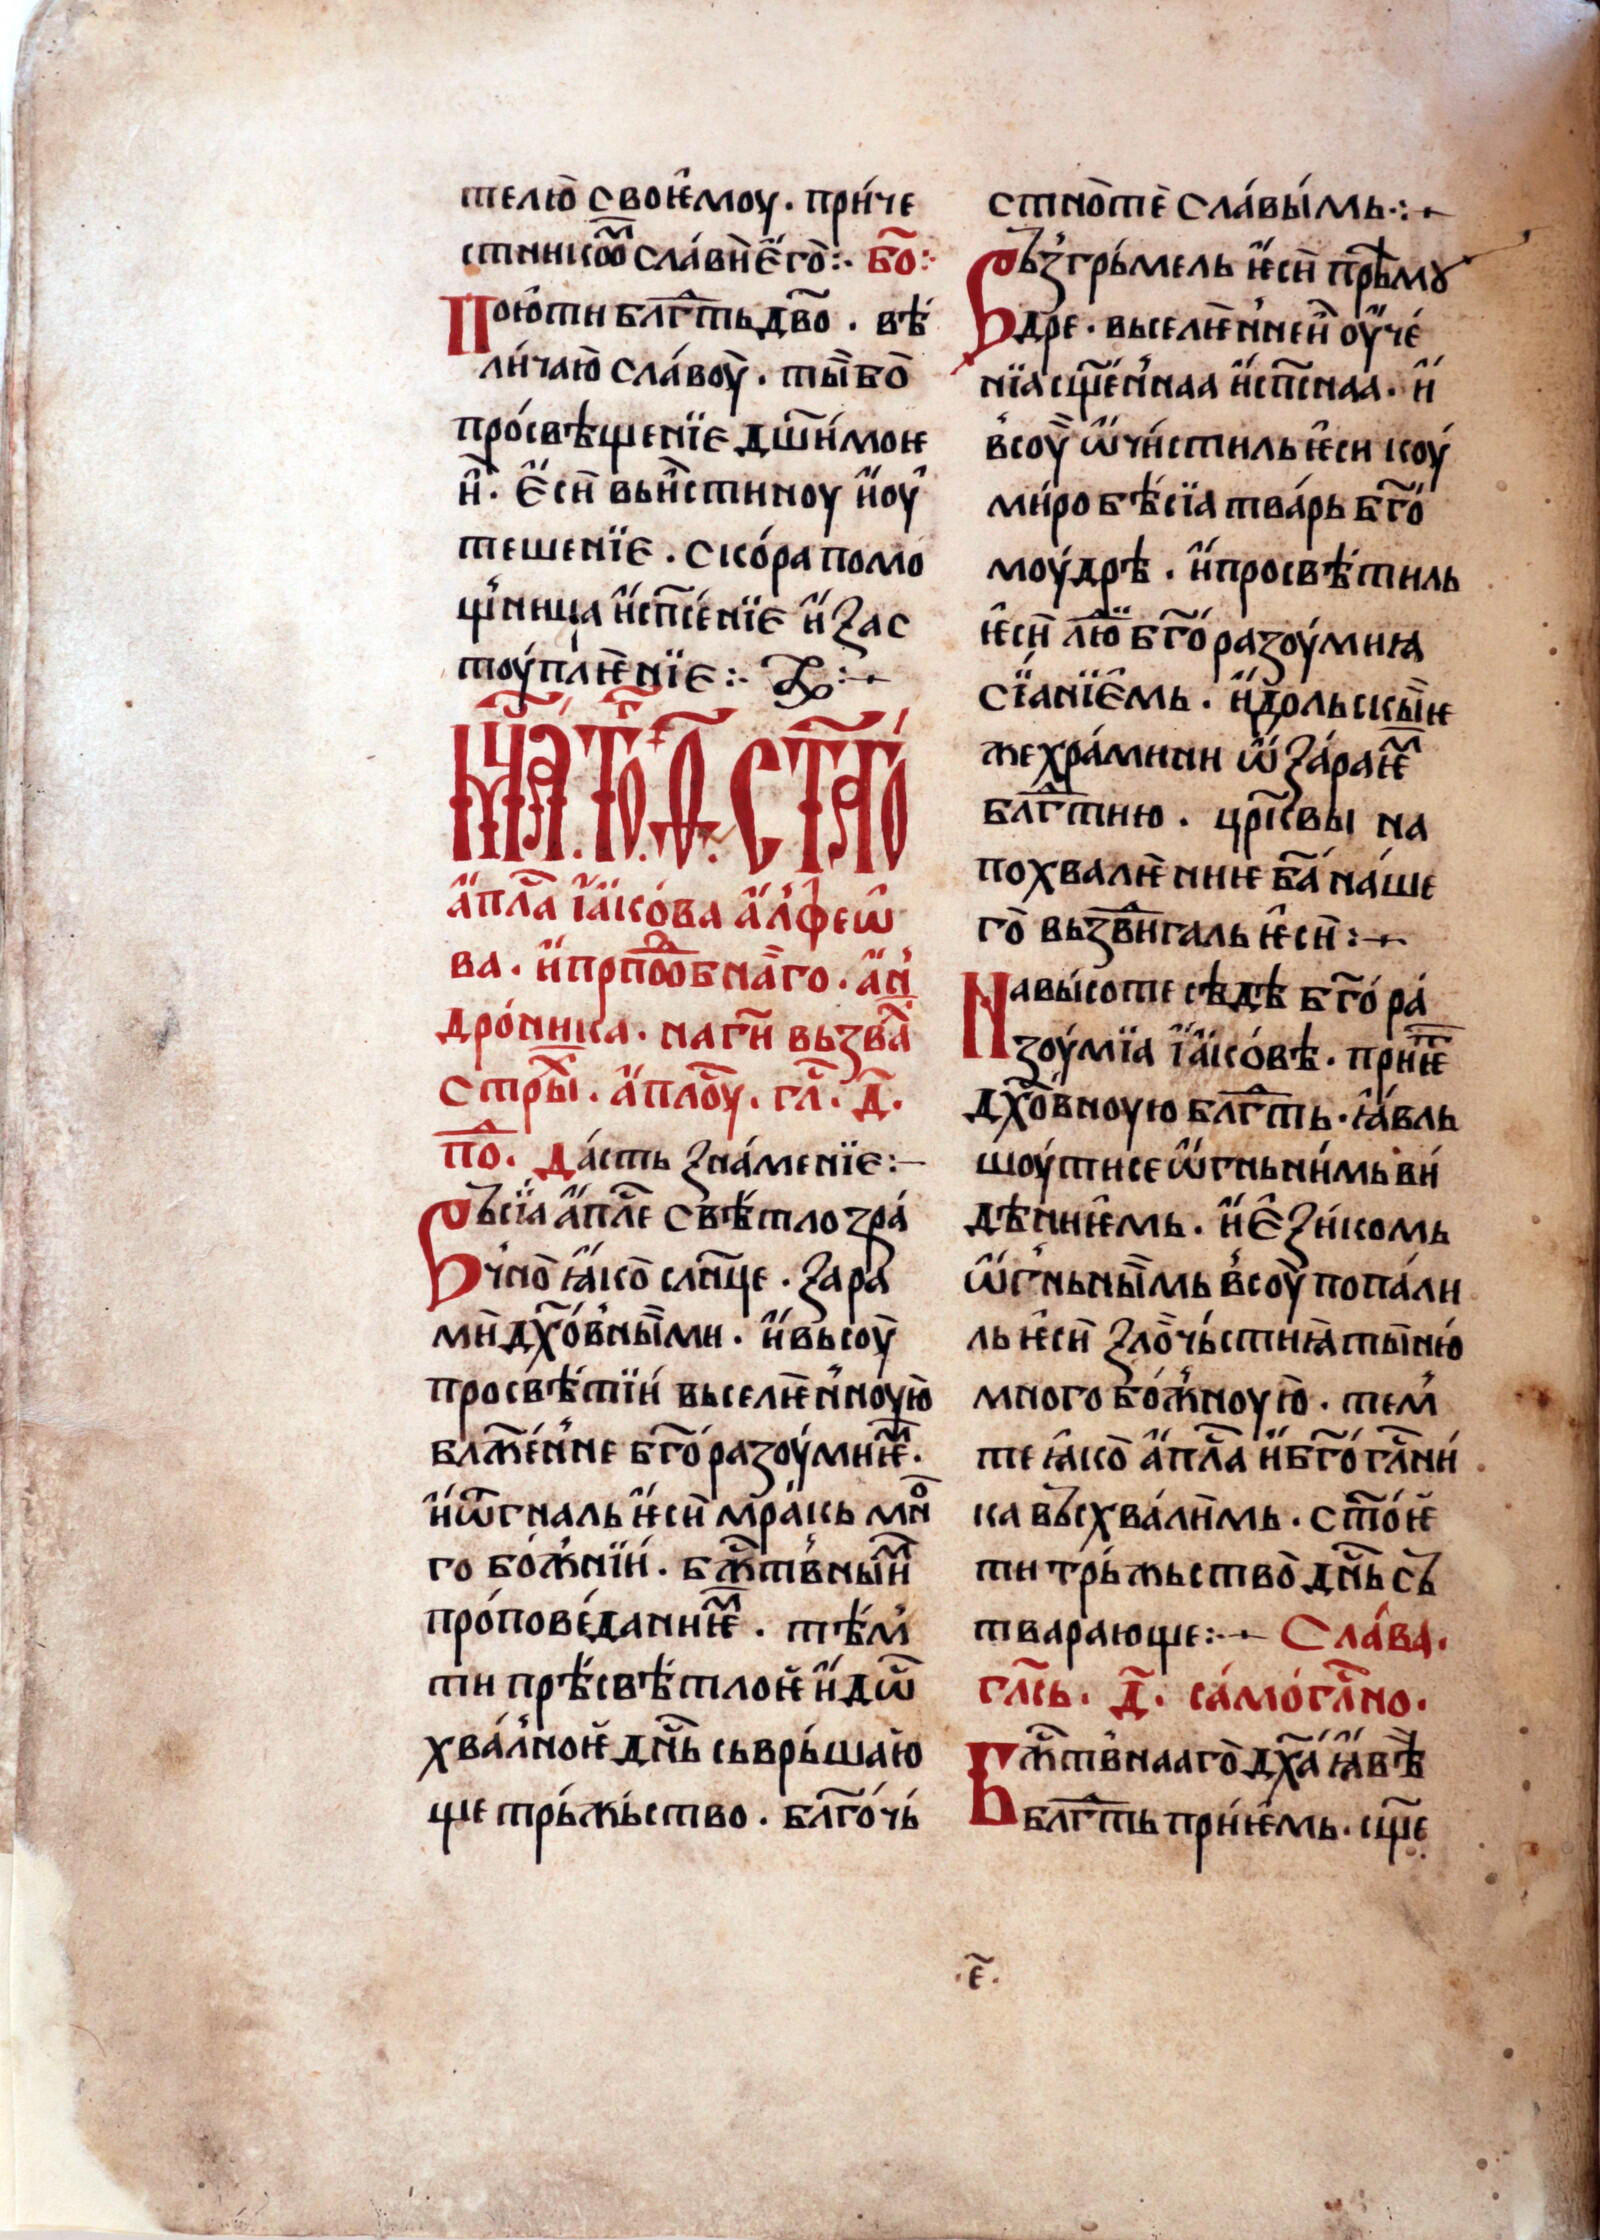 телю̀ своѥ̂моу · при́че
стникоⷨ сла́внѐ є҆го̀ :· бо҃ :·
Пою̂ ти бл҃гть дв҃о · вѣ́
ли́чаю̀ сла́воу̀ · ты̀ бо̀
про́свѣщенїє дш҃и́ моѥ
и̂ · є҆си̂ вьи́стиноу и҆оу҆
тешенїє · ско́ра помо
щ҆ница и҆сп҃се́нїє и҆ зас
тоу́плѥ̀нїє :·
мц҃а · то҃ · ѳ҃ · ст҃го́
а҆пл҃а і҆а҆ко́ва а҆л҆феѡ̂
ва · и҆прпⷣобна̀го · а҆н҆
дро́ника · на г҃и вьзва̀
стры̑ · а҆пл҃оу · гл҃ · д҃ ·
по҃ · да́сть зна́менїе :·
Вьсїа̀ а҆пл҃е свѣ́тло зра́
ч҆но̀ ꙗ҆ко̀ сл҃нце · зара
мѝ дх҃о́в҆ны̀ми · и҆ вьсоу̀
просвѣ́тїи́ вьселѥ̀н҆ноую̀
блж҃е́н҆не бг҃о́разоу́мнѥⷨ ·
и҆ ѿгналь ѥ҆сѝ мра́кь мно
го бо́ж҆нїи́ · бж҃тв҆ны̀иⷨ
про́пове́данниѥⷨ · тѣ́м҆
ти прѣ́свѣ́тлоѥ̀ и҆ дѡ҃
хва́л҆ноѥ̀ дн҃ь сьврь́шаю̀
ще трь́жь́ство · бл҃го́чь́
стно̀ те̂ сла́вы́мь ·:·
Вьз҆грь́мель ѥ҆сѝ прѣ́мꙋ
дре · вьселѥ̀н҆неи̂ оу҆че́
нїа сщ҃е́н҆наа и҆сп҃снаа · и҆
в҆соу̀ ѡ҆чи́стиль ѥ҆си коу́
ми́робѣ́сїа тва́рь бг҃о́
моу́дрѣ · и҆просвѣ́тиль
ѥ҆сѝ лю̂ї бг҃о́разоу́мниꙗ
сїа́нїє̂мь · и҆дольскы̀ѥ
же хра́мини ѡ҆за́раѥⷨ
бл҃гтию · цр҃квы на
похвалѥ̀ниѥ ба҃ на́ше
го̀ вьздви́галь ѥ҆сѝ :·
На вы́соте сѣ́дѣ бг҃о́ ра́
зоу́мїа і҆а҆ко́вѣ · приѥⷨ
дх҃о́вноую бл҃гть · ꙗ҆вль
шоу́ тисе ѡ҆гньни́мь ви́
дѣ́ниѥ̂мь · и҆ є̂зи́комь
ѡ҆г҆ньны̀мь в҆соу̀ попа́ли
ль ѥ҆сѝ зло̀чь́стиꙗ̀ тыню́
много бо́ж҆ноую̀ · тем҆
те ꙗ҆ко̀ а҆пл҃а и҆бг҃о́гл҃ни́
ка вьсхва́лѝмь · ст҃о́ѥ̀
ти трь́жьство̀ дн҃ь сь̀
тварающе :· Сла́ва ·
гл҃сь · д҃ · са́мо́гл҃но ·
Бж҃тв҆нааго̀ дх҃а ꙗ҆вѣ̀
бл҃гть при́ѥ̂мь · сщ҃е
· е҃ ·